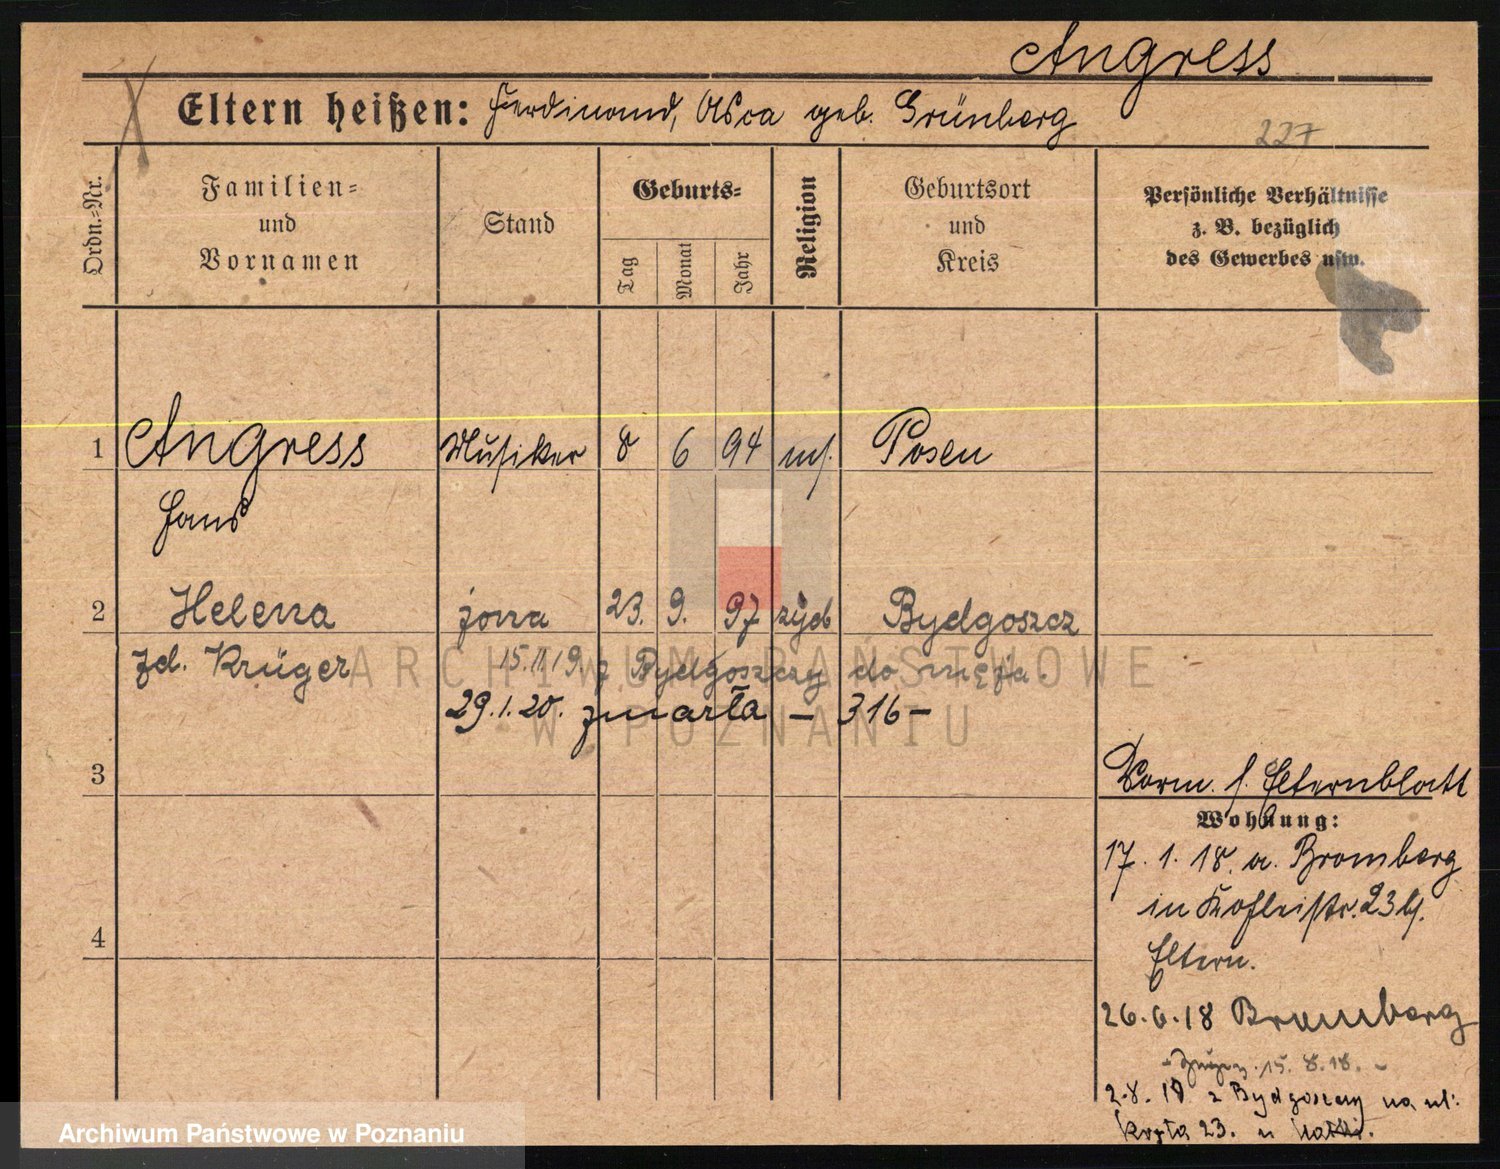 Angress
Eltern heißen: Ferdinand, geb. Grünberg
227
Ordn.=Nr.
Familien= und Vornamen
Stand
Geburts=
Tag Monat Jahr
Religion
Geburtsort und Kreis
Persönliche Verhältnisse
z. B. bezüglich
des Gewerbes usw.
1 Angress Musiker 8 6 94 Posen
Hans
2 Helena żona 23. 9. 97 żyd Bydgoszcz
zd. Krüger 15.11.19. z Bydgoszczy do męża.
29.1.20. zmarła – 316 –
3
Vorm. s. Elternblatt
Wohnung:
17. 1. 18. a. Bromberg
in 23 b.
Eltern.
4
26.6.18 Bromberg
15. 8. 18.
18 z Bydgoszczy na ul:
23. u
ARCHIWUM PAŃSTWOWE
W POZNANIU
Archiwum Państwowe w Poznaniu